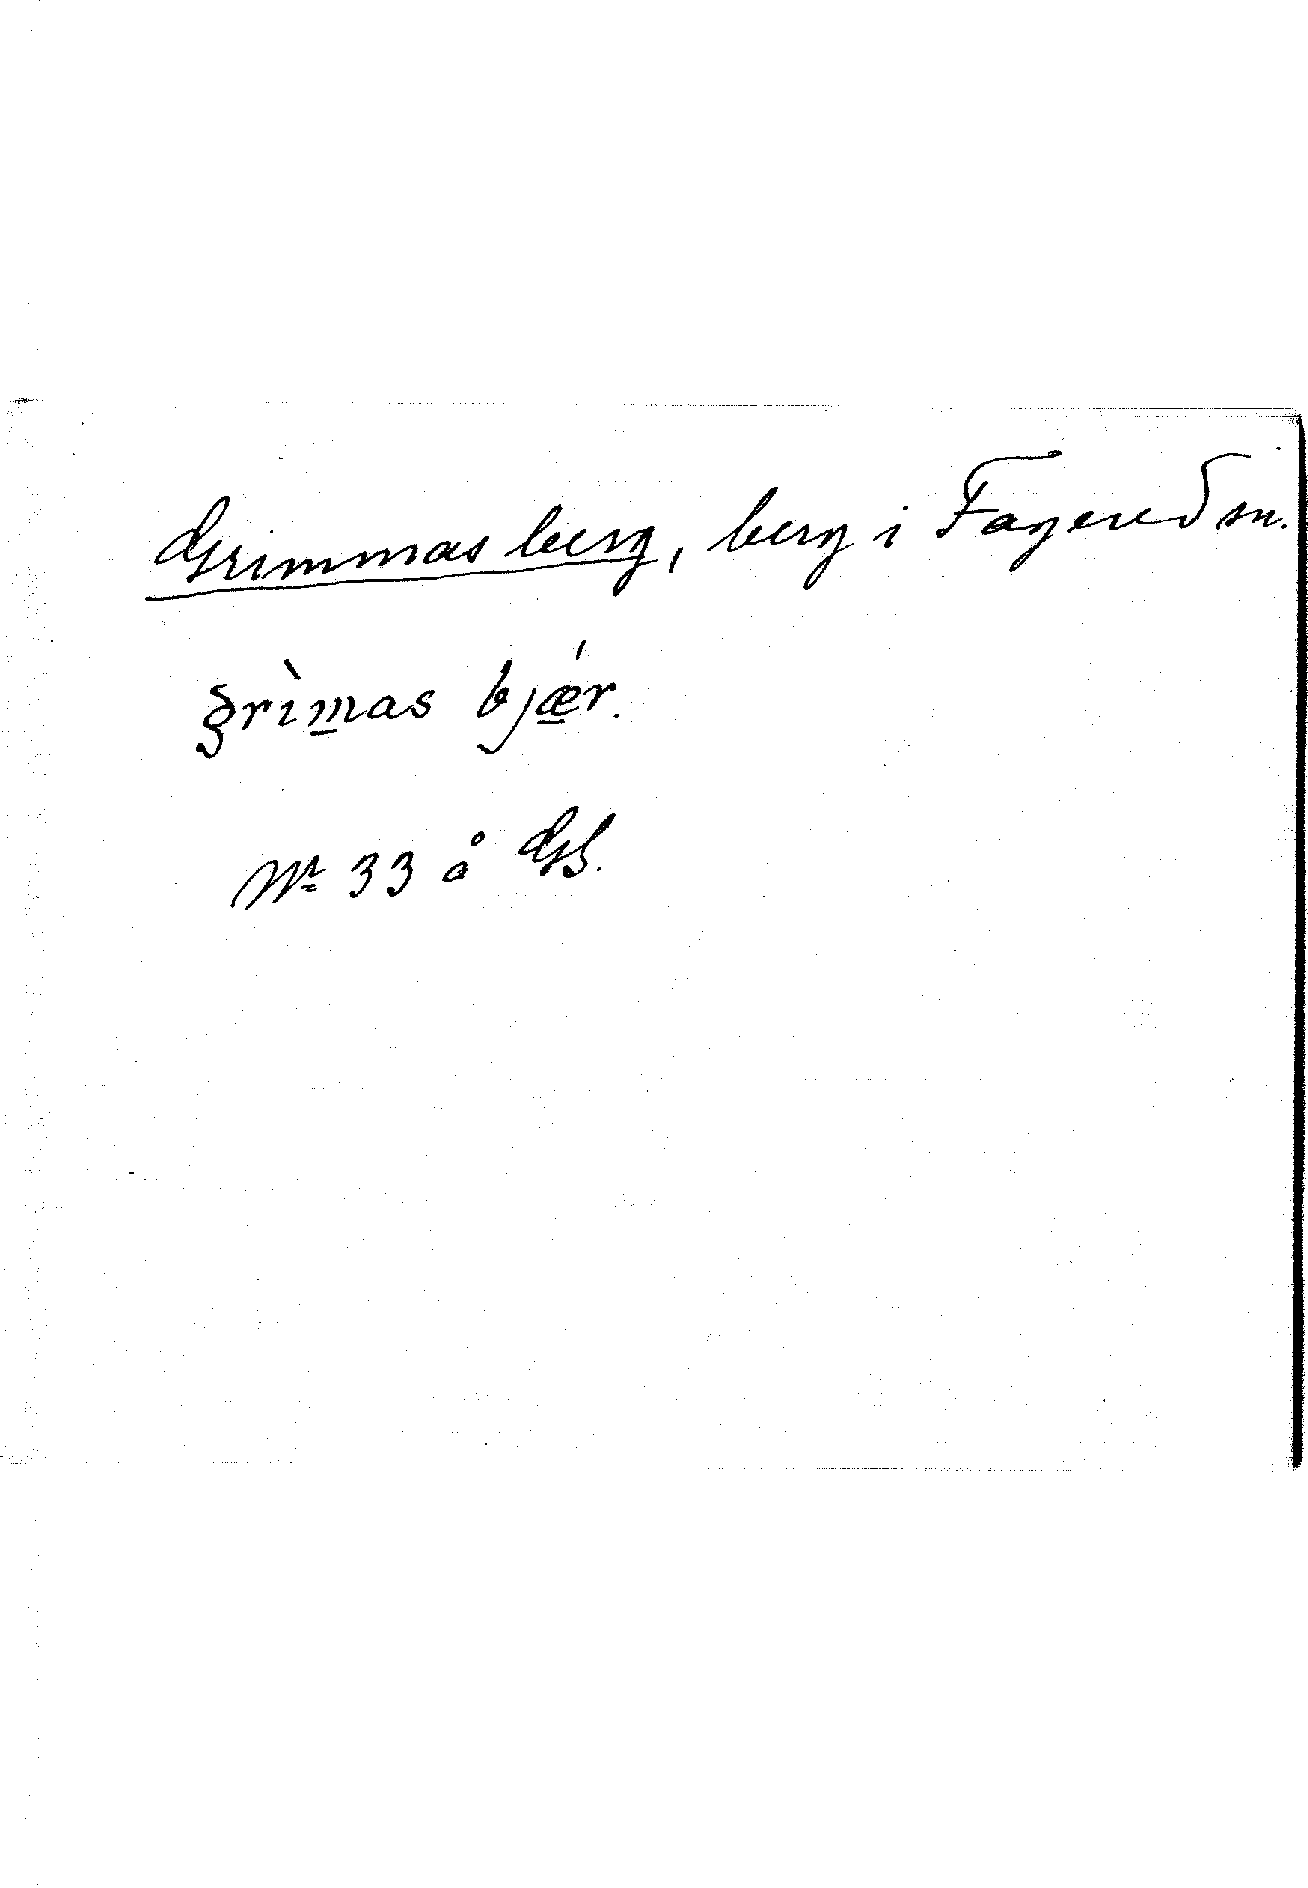 Grimmas berg, berg i Fagered sn.
grìmas bjǽr.
Nr 33 å GS.